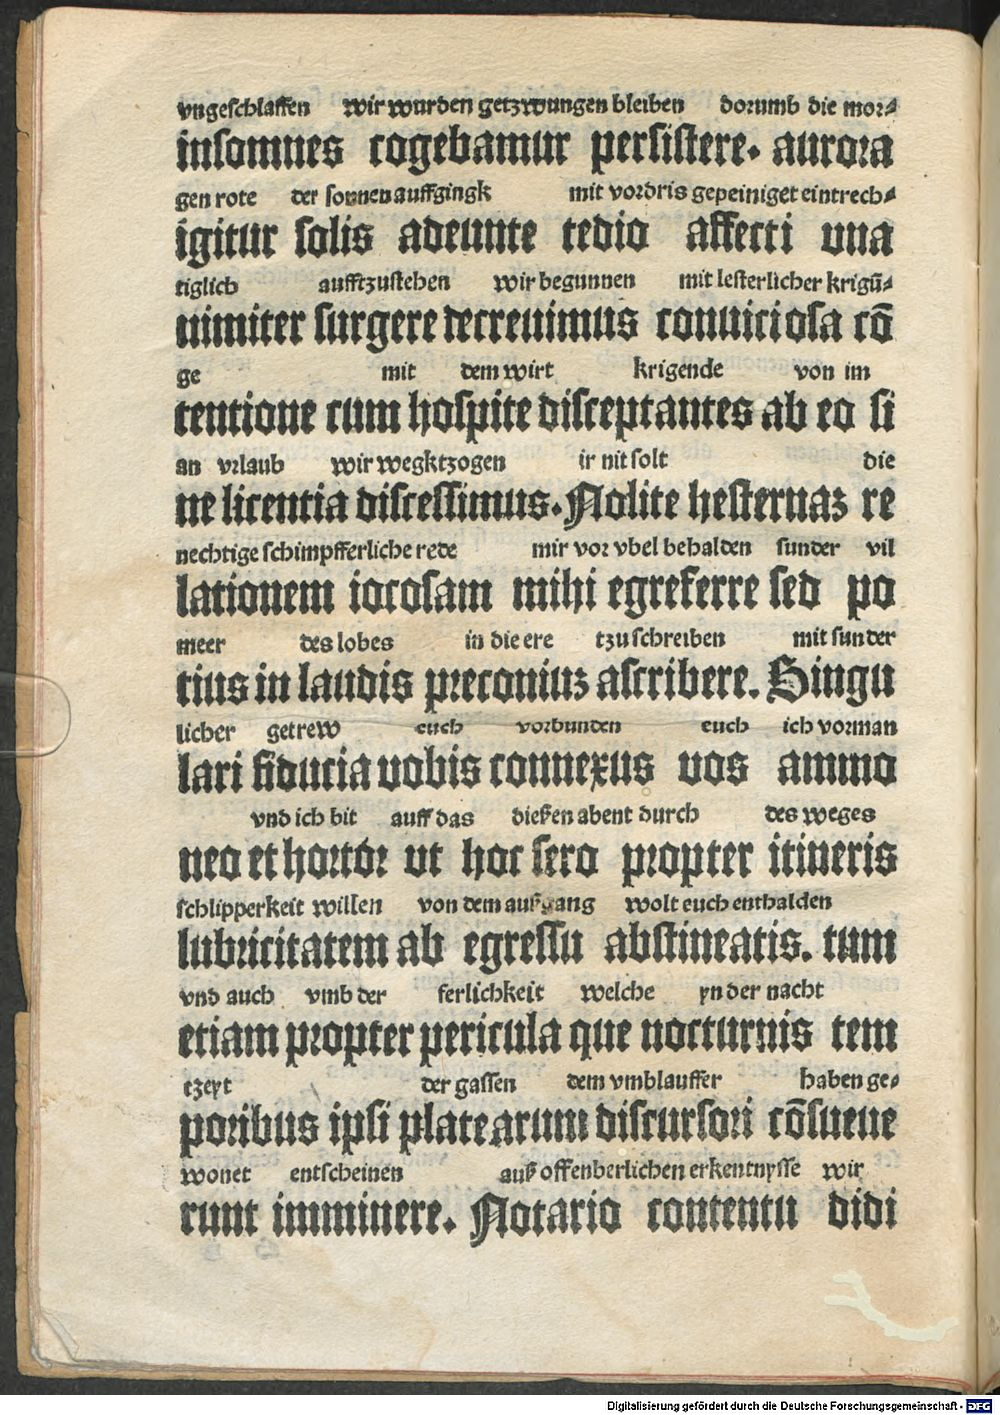 vngeschlaffen wir wurden getzwungen bleiben dorumb die mor⸗
insomnes cogebamur persistere. aurora
gen rote der sonnen auffgingk mit vordris gepeiniget eintrech⸗
igitur solis adeunte tedio affecti una
tiglich aufftzustehen wir begunnen mit lesterlicher krigū⸗
nimiter surgere decreuimus conuiciosa cō
ge mit dem wirt krigende von im
tentione cum hospite disceptantes ab eo si
an vrlaub wir wegktzogen ir nit solt die
ne licentia discessimus. Nolite hesternaz re
nechtige schimpfferliche rede mir vor vbel behalden sunder vil
lationem iocosam mihi egreferre sed po
meer des lobes in die ere tzu schreiben mit sunder
tius in laudis preconiuz ascribere. Singu
licher getrew euch vorbunden euch ich vorman
lari fiducia uobis connexus uos ammo
vnd ich bit auff das dießen abent durch des weges
neo et hortor ut hoc sero propter itineris
schlipperkeit willen von dem außgang wolt euch enthalden
lubricitatem ab egressu abstineatis. tum
vnd auch vmb der ferlichkeit welche yn der nacht
etiam propter pericula que nocturnis tem
tzeyt der gassen dem vmblauffer haben ge⸗
poribus ipsi platearum discursori cōsueue
wonet entscheinen auß offenberlichen erkentnysse wir
runt imminere. Notario contentu didi
Digitalisierung gefördert durch die Deutsche Forschungsgemeinschaft - DFG